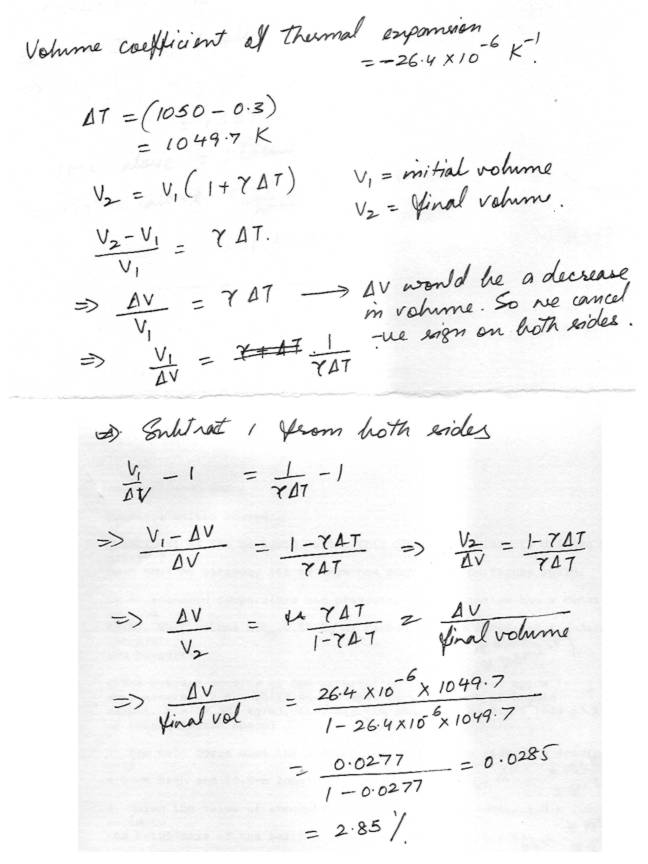 Volume coefficient of thermal expansion
= -26.4 × 10⁻⁶ K⁻¹.
ΔT = (1050 - 0.3)
= 1049.7 K
V₂ = V₁ (1 + γ ΔT)
V₁ = initial volume
V₂ = final volume.
(V₂ - V₁)/V₁ = γ ΔT.
⇒ ΔV/V₁ = γ ΔT → ΔV would be a decrease
in volume. So we cancel
-ve sign on both sides.
⇒ V₁/ΔV = 1/(γΔT)
⇒ Subtract 1 from both sides
V₁/ΔV - 1 = 1/(γΔT) - 1
⇒ (V₁ - ΔV)/ΔV = (1 - γΔT)/(γΔT) ⇒ V₂/ΔV = (1 - γΔT)/(γΔT)
⇒ ΔV/V₂ = γΔT/(1 - γΔT) = ΔV/final volume
⇒ ΔV/final vol = (26.4 × 10⁻⁶ × 1049.7)/(1 - 26.4 × 10⁻⁶ × 1049.7)
= 0.0277/(1 - 0.0277) = 0.0285
= 2.85 %